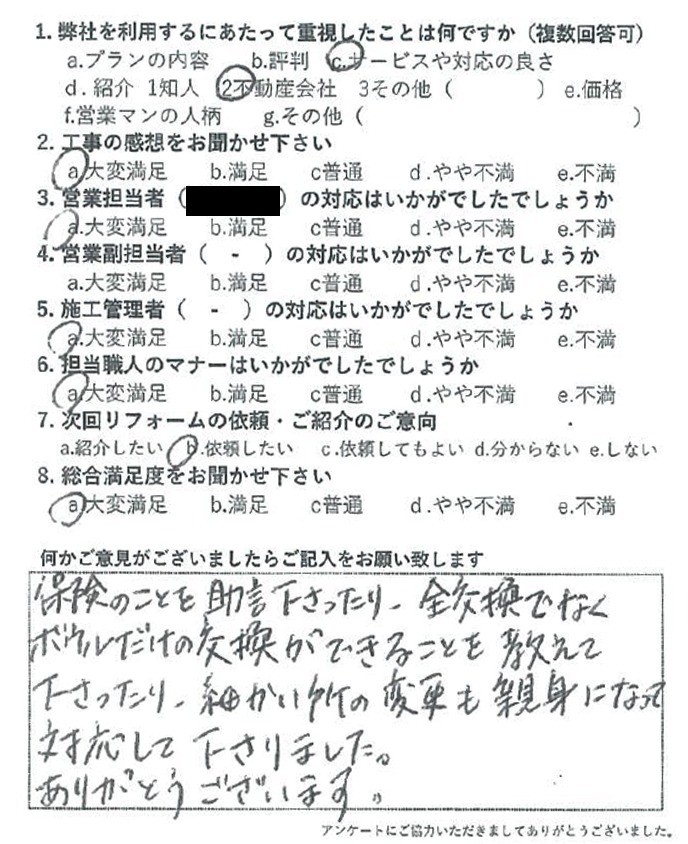 1. 弊社を利用するにあたって重視したことは何ですか（複数回答可）
a.プランの内容 b.評判 c.サービスや対応の良さ
d. 紹介 1知人 2不動産会社 3その他（ ） e.価格
f.営業マンの人柄 g.その他（ ）
2. 工事の感想をお聞かせ下さい
a.大変満足 b.満足 c普通 d.やや不満 e.不満
3. 営業担当者（ ）の対応はいかがでしたでしょうか
a.大変満足 b.満足 c普通 d.やや不満 e.不満
4. 営業副担当者（ - ）の対応はいかがでしたでしょうか
a.大変満足 b.満足 c普通 d.やや不満 e.不満
5. 施工管理者（ - ）の対応はいかがでしたでしょうか
a.大変満足 b.満足 c普通 d.やや不満 e.不満
6. 担当職人のマナーはいかがでしたでしょうか
a.大変満足 b.満足 c普通 d.やや不満 e.不満
7. 次回リフォームの依頼・ご紹介のご意向
a.紹介したい b.依頼したい c.依頼してもよい d.分からない e.しない
8. 総合満足度をお聞かせ下さい
a.大変満足 b.満足 c普通 d.やや不満 e.不満
何かご意見がございましたらご記入をお願い致します
保険のことを助言下さったり、全交換でなく
ボウルだけの交換ができることを教えて
下さったり、細かい所の変更も親身になって
対応して下さりました。
ありがとうございます。
アンケートにご協力いただきましてありがとうございました。